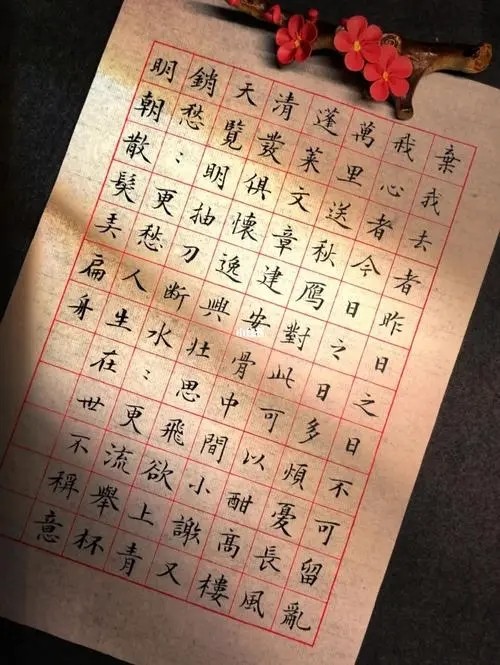 棄我去者昨日之日不可留亂
我心者今日之日多煩憂長風
萬里送秋鴈對此可以酣高樓
蓬萊文章建安骨中間小謝又
清發俱懷逸興壯思飛欲上青
天覽明抽刀斷水：更流舉杯
銷愁：更愁人生在世不稱意
明朝散髮弄扁舟